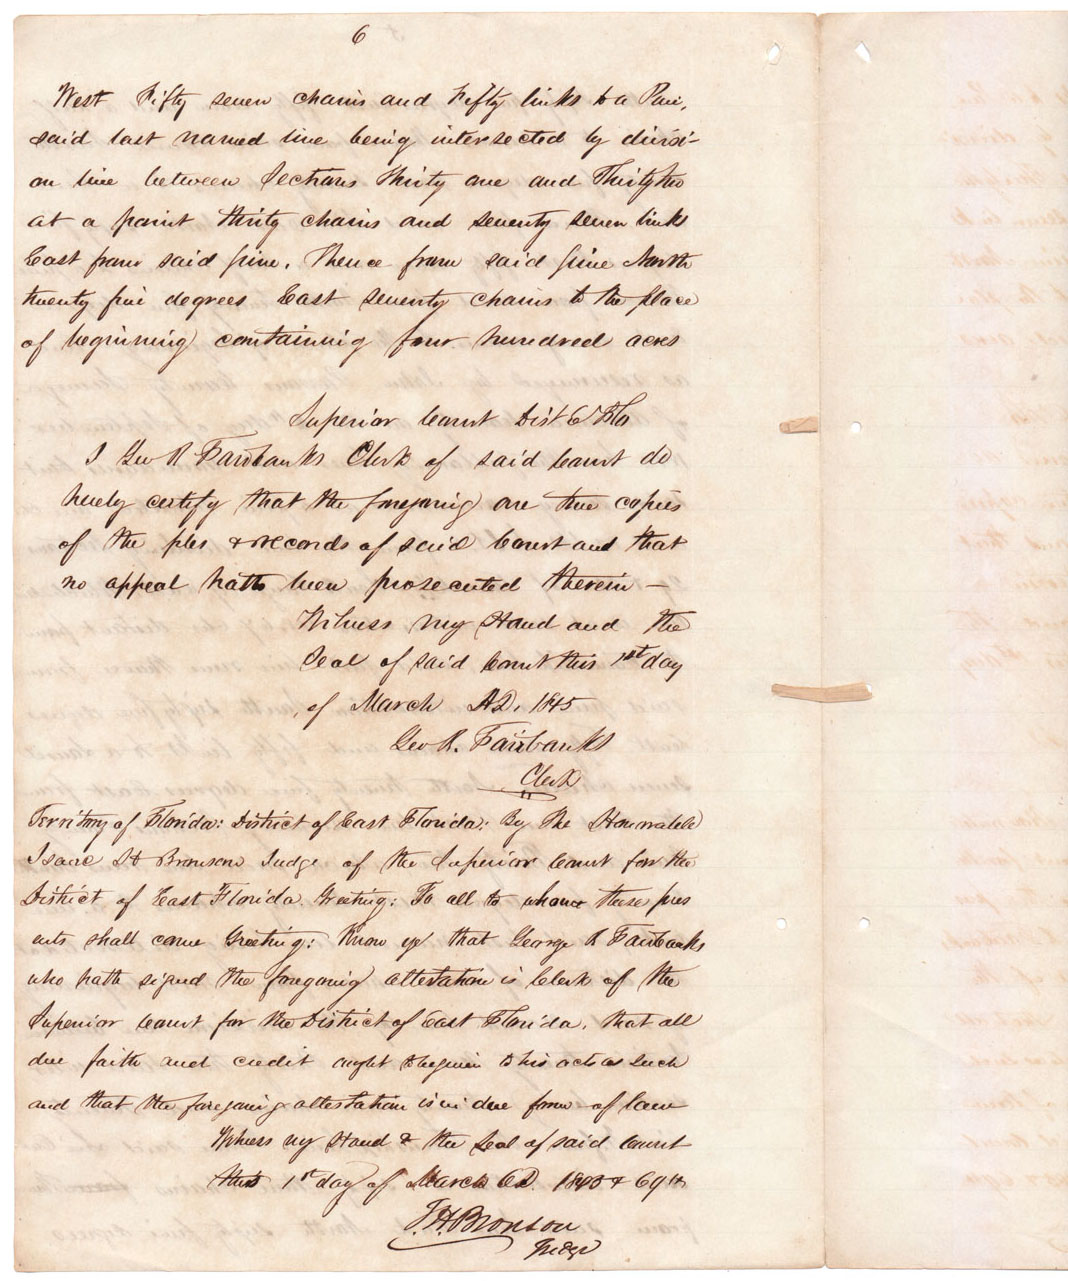 6
West Fifty seven chains and Fifty links to a Pine,
said last named line being intersected by divisi-
on line between Sections Thirty one and Thirty two
at a point thirty chains and seventy seven links
East from said pine. Thence from said pine North
twenty five degrees East seventy chains to the place
of beginning containing four hundred acres
Superior Court Dist E. Flo
I Geo R Fairbanks Clerk of said Court do
hereby certify that the foregoing are true copies
of the files & records of said Court and that
no appeal hath been prosecuted therein —
Witness my Hand and the
Seal of said Court this 1st day
of March AD. 1845
Geo R. Fairbanks
Clerk
Territory of Florida: District of East Florida: By the Honorable
Isaac H Bronson Judge of the Superior Court for the
District of East Florida. Greeting: To all to whom these pres
ents shall come Greeting: Know ye that George R Fairbanks
who hath signed the foregoing attestation is Clerk of the
Superior Court for the District of East Florida. that all
due faith and credit ought to be given to his acts as such
and that the foregoing attestation is in due form of law
Witness my Hand & the Seal of said Court
this 1st day of March AD. & 69th
I.H. Bronson
Judge